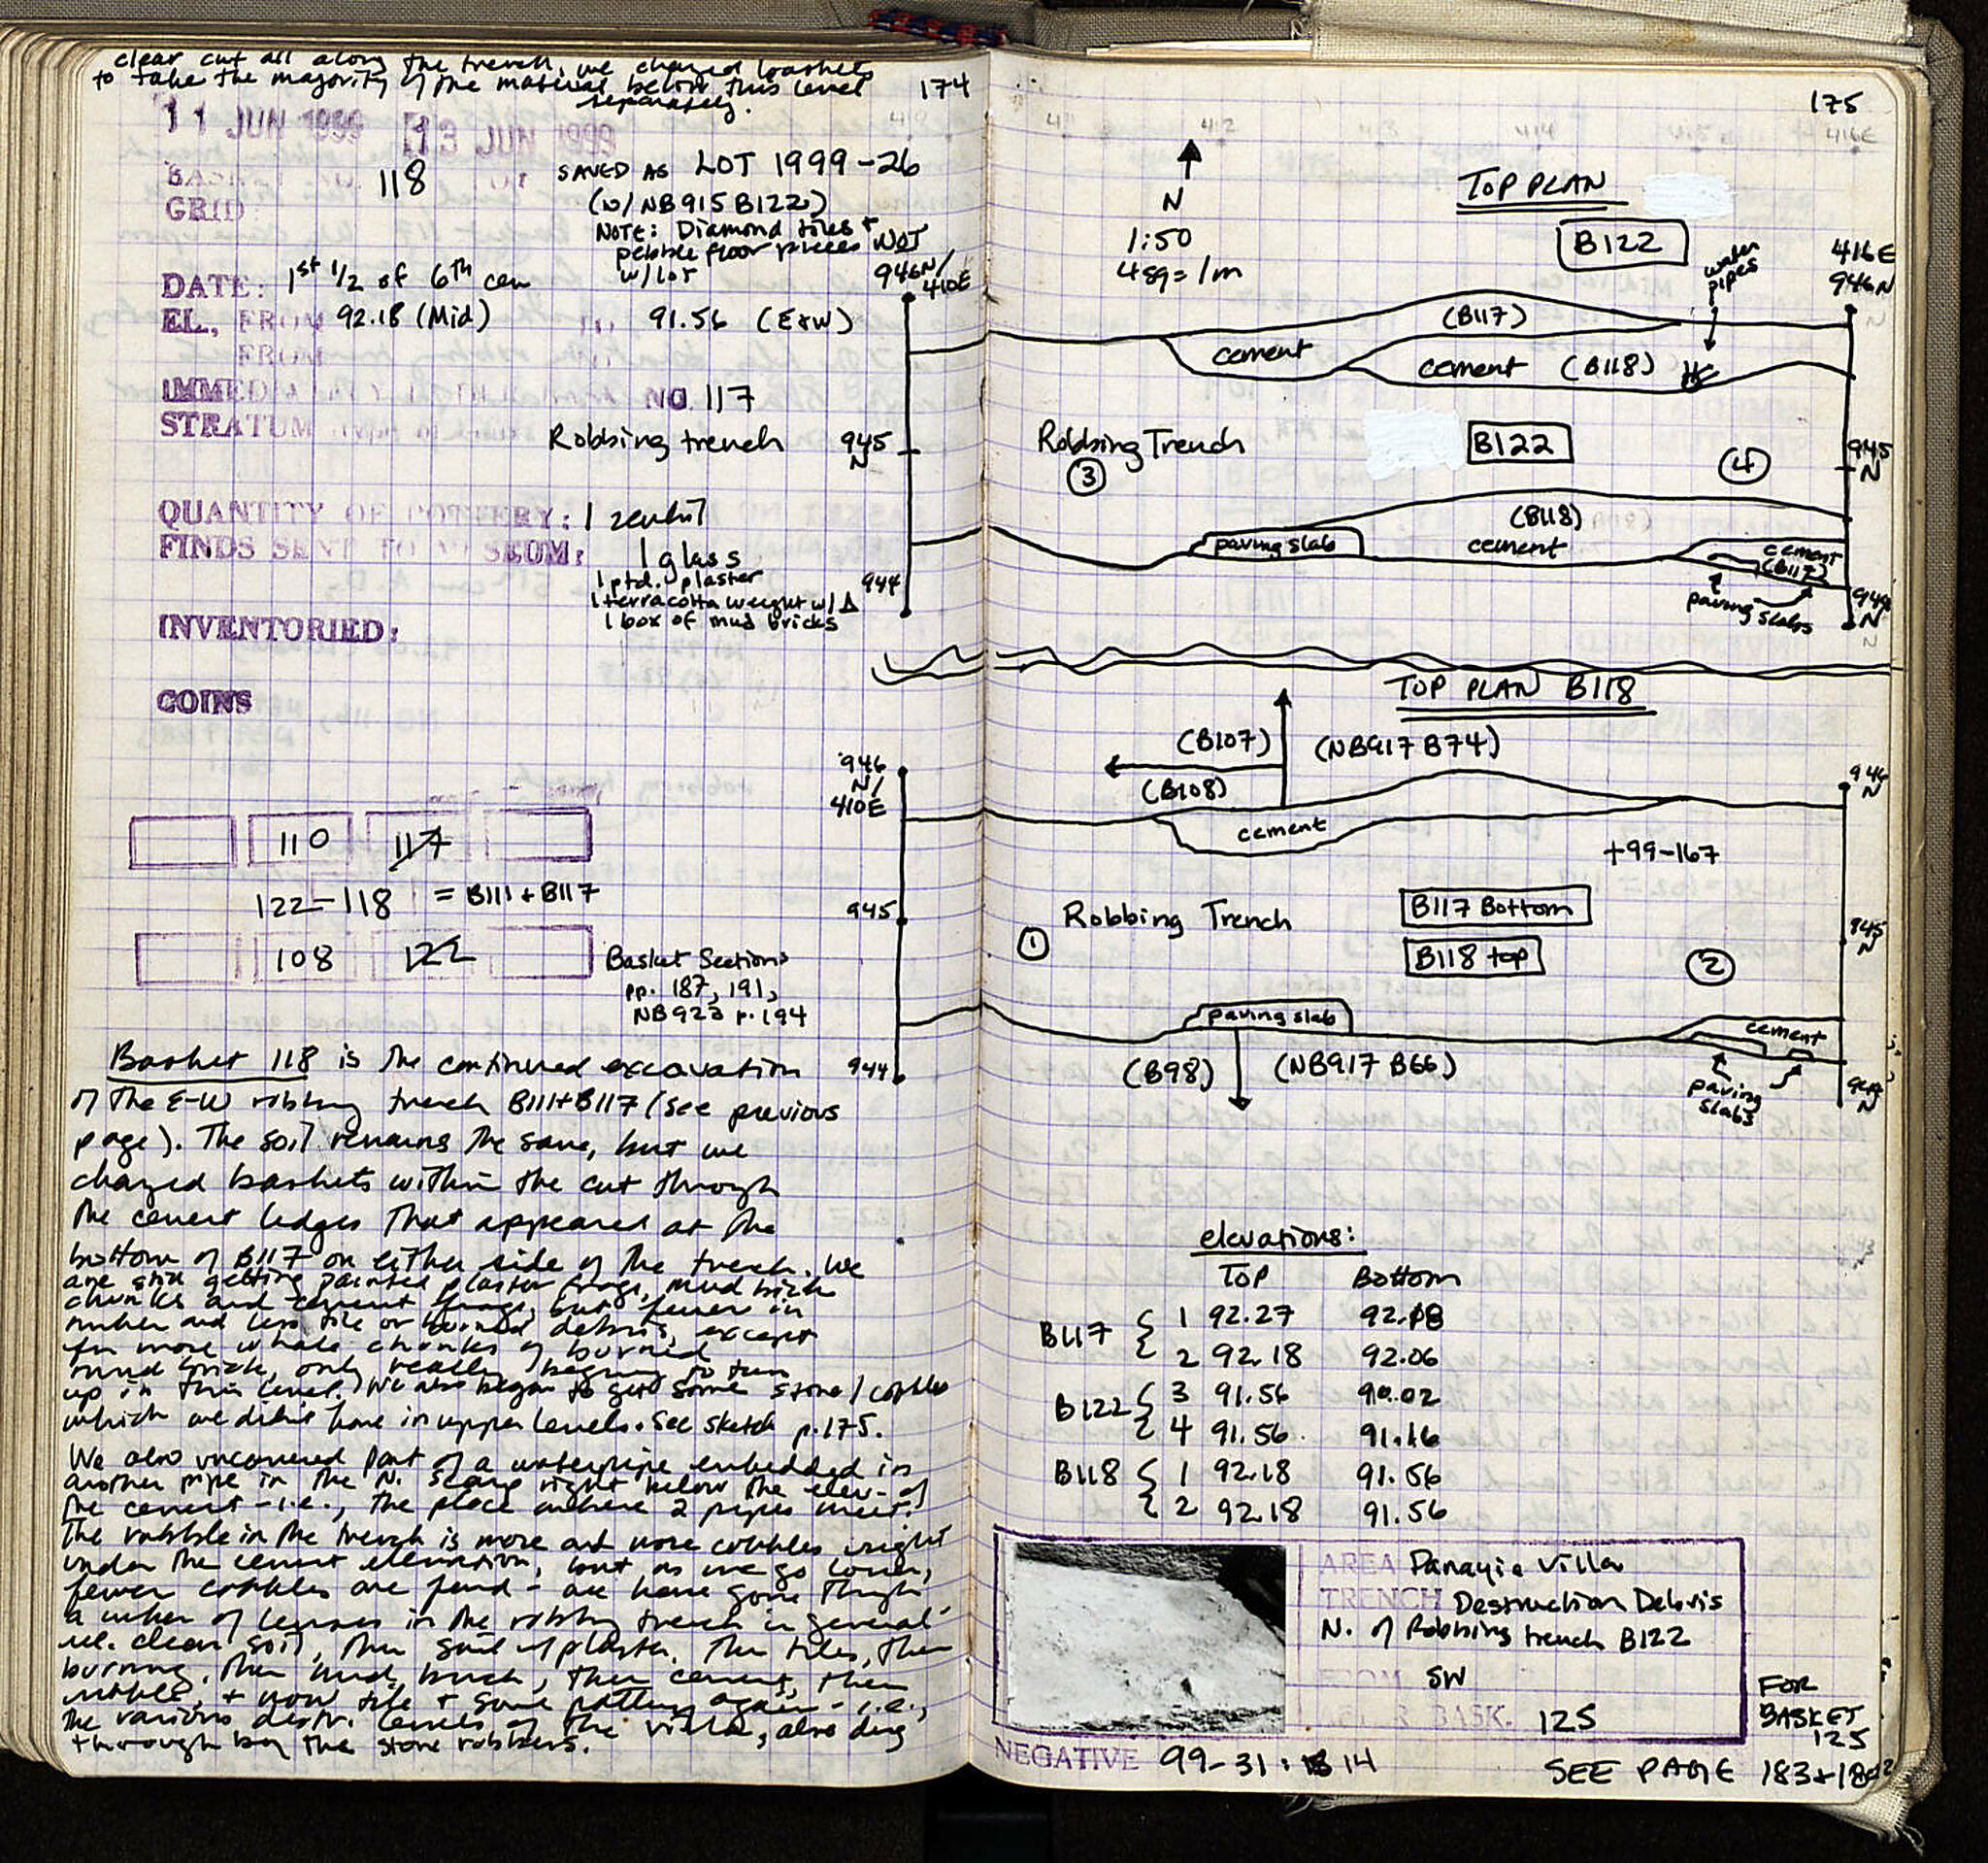 clear cut all along the trench, we changed baskets
to take the majority of the material below this level
separately.
174
11 JUN 1999 13 JUN 1999
BASKET NO. 118
SAVED AS LOT 1999-26
(w/ NB915 B122)
GRID:
NOTE: Diamond tiles +
pebble floor pieces NOT
w/lot
DATE: 1st 1/2 of 6th cen
EL., FROM 92.18 (Mid) TO 91.56 (E+W)
FROM
NO. 117
STRATUM Robbing trench
QUANTITY OF POTTERY: 1
FINDS SENT TO MUSEUM: 1 glass
1 ptd. plaster
1 terracotta weight w/ Δ
1 box of mud bricks
INVENTORIED:
COINS
110 117
122 - 118 = B111 + B117
108 122
Basket Sections
pp. 187, 191,
NB922 p. 194
Basket 118 is the continued excavation
of the E-W robbing trench B111+B117 (see previous
page). The soil remains the same, but we
changed baskets within the cut through
the cement ledges that appeared at the
bottom of B117 on either side of the trench. We
are still getting painted plaster frags, mud brick
chunks and cement frags, but fewer in
number and less tile or burned debris, except
for more whole chunks of burned
mud brick, only really beginning to turn
up in this level. We also began to get some stone/cobbles
which we didn't have in upper levels. See sketch p. 175.
We also uncovered part of a waterpipe embedded in
another pipe in the N. scarp right below the elev. of
the cement - i.e., the place where 2 pipes meet.
The rubble in the trench is more and more cobbles right
under the cement elevation, but as we go lower,
fewer cobbles are found - we have gone through
a number of lenses in the robbing trench in general -
clean soil, then soil w/ plaster, then tiles, then
burning, then mud brick, then cement, then
rubble, + now tile + some pottery again - i.e.,
the various destr. levels of the villa, also dug
through by the stone robbers.
175
416E
N
1:50
4sq = 1m
TOP PLAN
B122
water
pipes
946N/
410E
416E
946N
(B117)
cement
cement (B118)
945
N
Robbing Trench
3
B122
4
945
N
(B118)
paving slab
cement
cement
(B117)
paving slabs
944
944
N
TOP PLAN B118
(B107)
(NB917 B74)
(B108)
946
N/
410E
946
N
cement
+99-167
945
Robbing Trench
1
B117 Bottom
B118 top
2
945
N
paving slab
cement
(B98)
(NB917 B66)
paving
slabs
944
944
N
elevations:
TOP Bottom
B117 { 1 92.27 92.18
2 92.18 92.06
B122 { 3 91.56 90.02
4 91.56 91.16
B118 { 1 92.18 91.56
2 92.18 91.56
AREA Panayia Villa
TRENCH Destruction Debris
N. of Robbing trench B122
FROM SW
AFTER BASK. 125
FOR
BASKET
125
NEGATIVE 99-31: 14
SEE PAGE